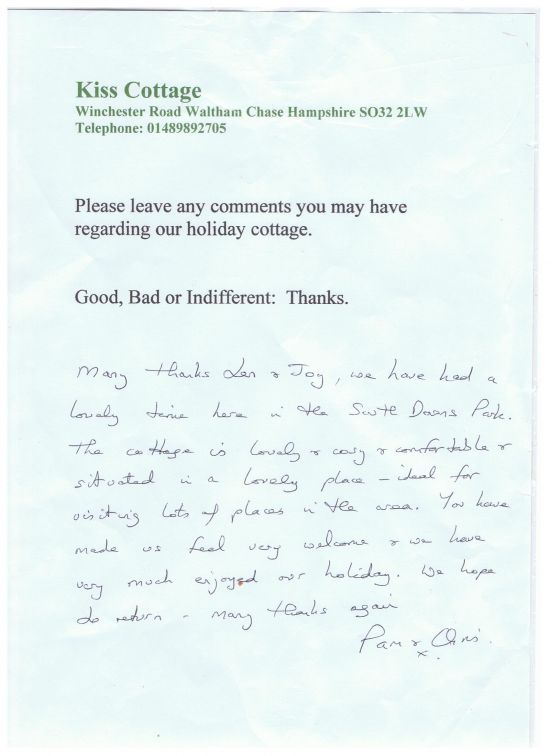 Kiss Cottage
Winchester Road Waltham Chase Hampshire SO32 2LW
Telephone: 01489892705
Please leave any comments you may have
regarding our holiday cottage.
Good, Bad or Indifferent:  Thanks.
Many thanks Len & Joy, we have had a
lovely time here in the South Downs Park.
The cottage is lovely & cosy & comfortable &
situated in a lovely place – ideal for
visiting lots of places in the area. You have
made us feel very welcome & we have
very much enjoyed our holiday. We hope
to return - many thanks again
Pam & Chris.
x.